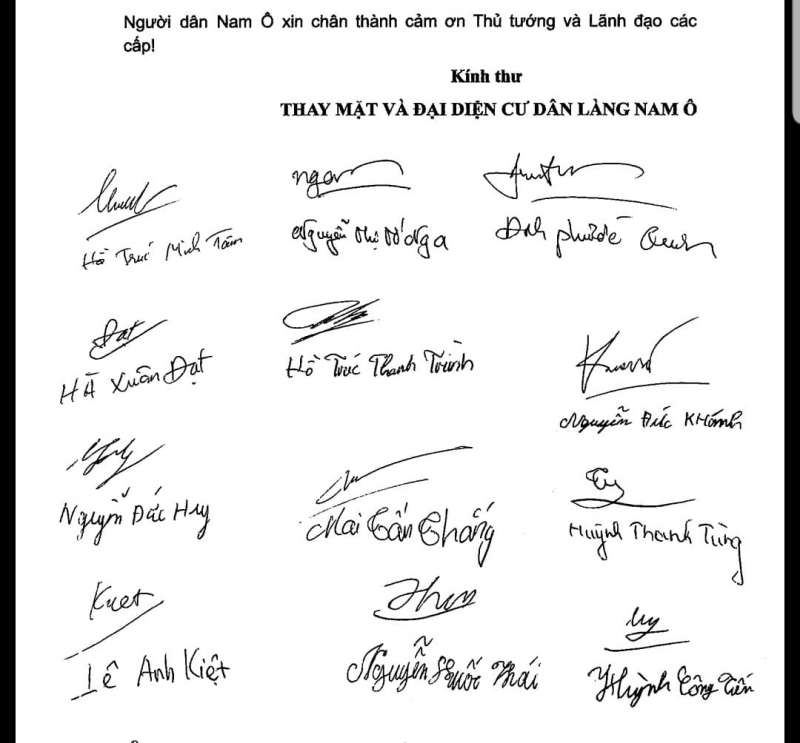 Người dân Nam Ô xin chân thành cảm ơn Thủ tướng và Lãnh đạo các
cấp!
Kính thư
THAY MẶT VÀ ĐẠI DIỆN CƯ DÂN LÀNG NAM Ô
Hồ Trúc Minh Tâm
Nguyễn Thị Tố Nga
Đinh
Đạt
HÀ Xuân Đạt
Hồ Trúc Thanh Trinh
Nguyễn Đức KHánh
Nguyễn Đức Huy
Mai Tấn Thắng
Huỳnh Thanh Tùng
Lê Anh Kiệt
Nguyễn Thái
Huỳnh Công Tiến